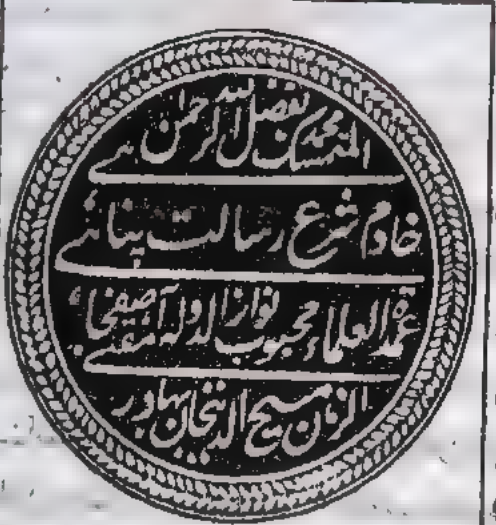 المتمسک بفضل اللہ الرحمن محمد
خادم شرع رسالت پناہی
عمدۃ العلماء محبوب نواز الدولہ مفتی آصفجاہی
الزمان مسیح الدینخان بہادر